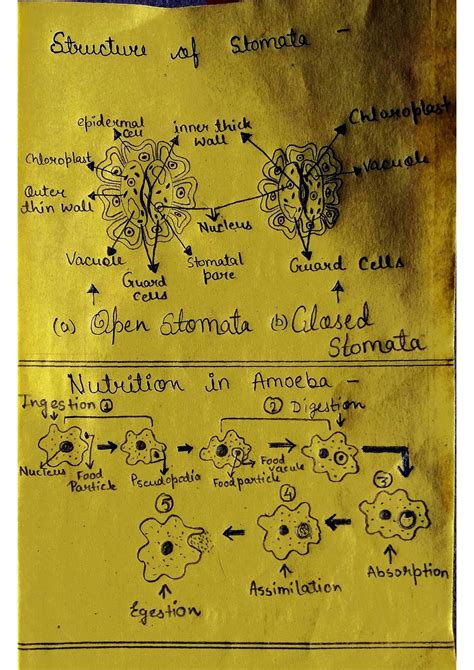 Structure of Stomata -
epidermal cell
inner thick wall
Chloroplast
Chloroplast
Vacuole
Outer thin wall
Nucleus
Vacuole
Guard cells
Stomatal pore
Guard Cells
(a) Open Stomata (b) Closed Stomata
Nutrition in Amoeba -
Ingestion ①
② Digestion
Nucleus
Food Particle
Pseudopodia
Food particle
Food vacuole
③
④
⑤
Absorption
Assimilation
Egestion